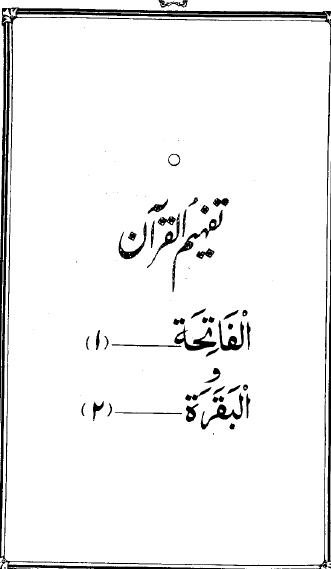 تفہیم القرآن
الْفَاتِحَة ــــــــ (۱)
و
الْبَقَرَة ــــــــ (۲)